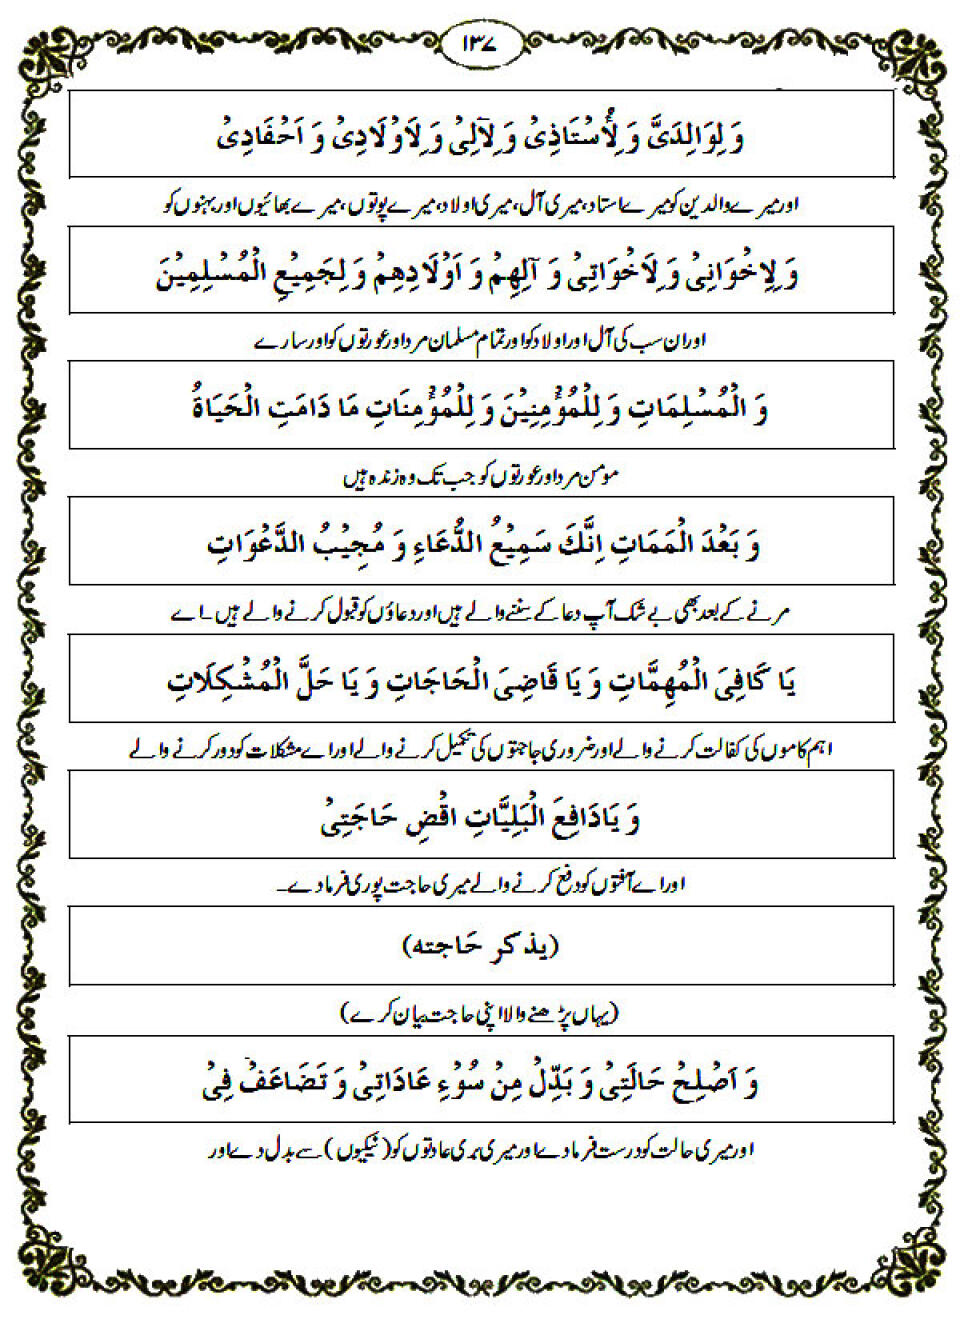 ۱۳۷
وَ لِوَالِدَیَّ وَ لِاُسْتَاذِیْ وَ لِآلِیْ وَ لِاَوْلَادِیْ وَ اَحْفَادِیْ
اور میرے والدین کو میرے استاد، میری آل، میری اولاد، میرے پوتوں، میرے بھائیوں اور بہنوں کو
وَ لِاِخْوَانِیْ وَ لِاَخْوَاتِیْ وَ آلِهِمْ وَ اَوْلَادِهِمْ وَ لِجَمِیْعِ الْمُسْلِمِیْنَ
اور ان سب کی آل اور اولاد کو اور تمام مسلمان مرد اور عورتوں کو اور سارے
وَ الْمُسْلِمَاتِ وَ لِلْمُؤْمِنِیْنَ وَ لِلْمُؤْمِنَاتِ مَا دَامَتِ الْحَیَاةُ
مومن مرد اور عورتوں کو جب تک وہ زندہ ہیں
وَ بَعْدَ الْمَمَاتِ اِنَّكَ سَمِیْعُ الدُّعَاءِ وَ مُجِیْبُ الدَّعْوَاتِ
مرنے کے بعد بھی بے شک آپ دعا کے سننے والے ہیں اور دعاؤں کو قبول کرنے والے ہیں۔ اے
یَا کَافِیَ الْمُهِمَّاتِ وَ یَا قَاضِیَ الْحَاجَاتِ وَ یَا حَلَّ الْمُشْکِلَاتِ
اہم کاموں کی کفالت کرنے والے اور ضروری حاجتوں کی تکمیل کرنے والے اور اے مشکلات کو دور کرنے والے
وَ یَادَافِعَ الْبَلِیَّاتِ اقْضِ حَاجَتِیْ
اور اے آفتوں کو دفع کرنے والے میری حاجت پوری فرمادے۔
(یذکر حَاجته)
(یہاں پڑھنے والا اپنی حاجت بیان کرے)
وَ اَصْلِحْ حَالَتِیْ وَ بَدِّلْ مِنْ سُوْءِ عَادَاتِیْ وَ تَضَاعَفْ فِیْ
اور میری حالت کو درست فرمادے اور میری بری عادتوں کو (نیکیوں) سے بدل دے اور